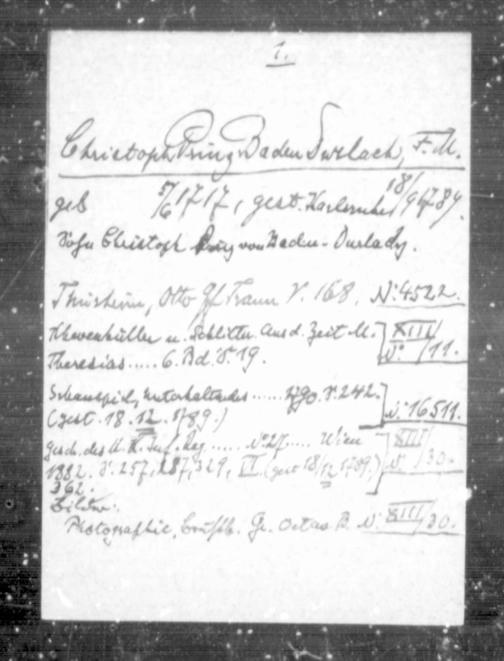 1.
Christoph Prinz Baden Durlach, F.M.
geb 5/6 1717, gest. Karlsruhe 18/9 1789.
Sohn Christoph Prinz von Baden-Durlach.
Thürheim, Otto Gf Traun S. 168. Nº 4522.
Khevenhüller u. Schlitter Aus d. Zeit M. XIII
Theresias ..... 6. Bd. S. 19. Nº /11.
..... 1790. S. 242.
(gest. 18. 12. 1789.) Nº 16511.
Gesch. des K. K. Inf. Reg. ..... Nº 27 .... Wien XIII
1882. S. 257, 287, 329, VI. (gest 18/12 1789.) N. /30.
362.
Bilder:
Photographie, Brustb. Gr. Octav B. N. XIII/30.